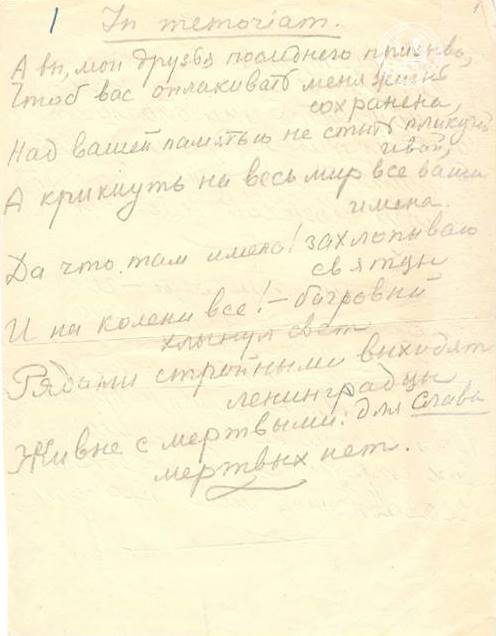 1
1
In memoriam.
А вы, мои друзья последнего призыва,
Чтоб вас оплакивать мне жизнь
сохранена,
Над вашей памятью не стыть плакучей
ивой,
А крикнуть на весь мир все ваши
имена.
Да что там имена! захлопываю
святцы
И на колени все! – багровый
хлынул свет
Рядами стройными выходят
ленинградцы
Живые с мертвыми: для Славы
мертвых нет.